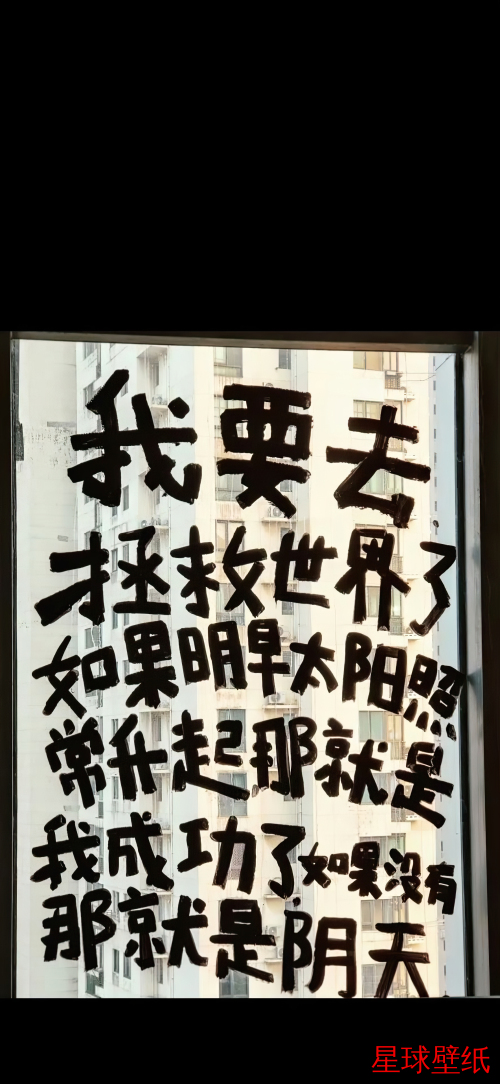 我要去
拯救世界了
如果明早太阳照
常升起那就是
我成功了如果没有
那就是阴天
星球壁纸